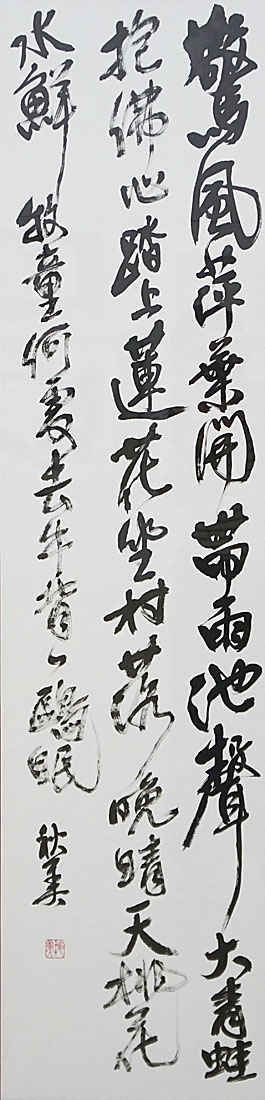 驚風萍葉開帶雨池聲大青蛙
抱佛心踏上蓮花坐村落晚晴天桃花
水鮮牧童何處去牛背一鷗眠
秋美